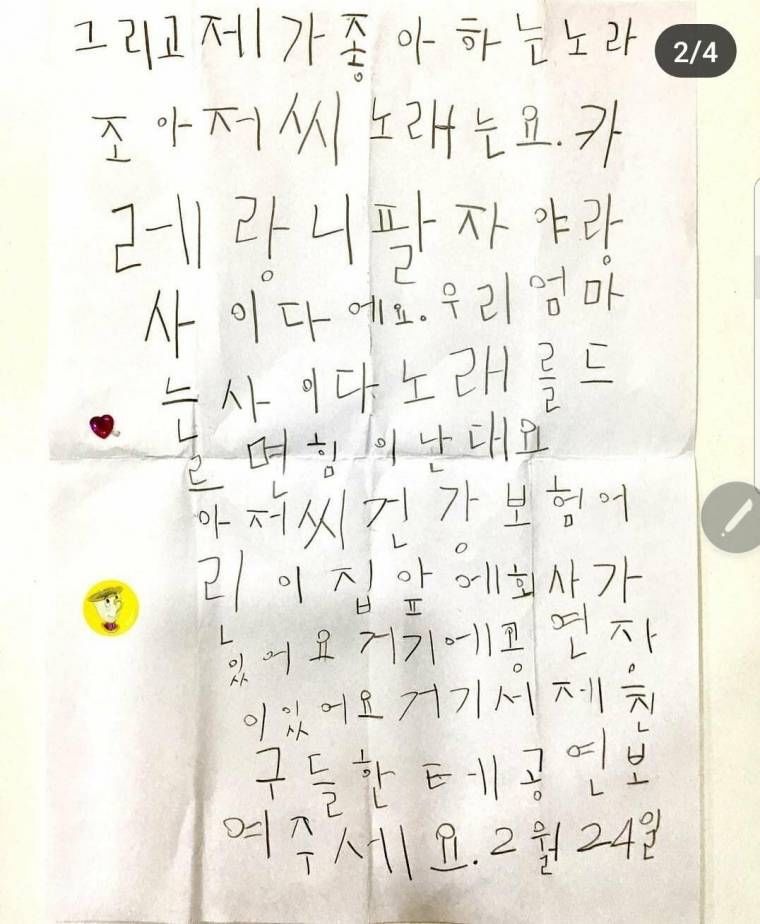 그리고 제가 좋아하는 노라
2/4
조아저씨 노래는요. 카
레랑 니팔자야랑
사이다에요. 우리 엄마
는 사이다 노래를 드
르면 힘이 난대요
아저씨 건강보험 어
린이집 앞에 회사가
있어요 거기에 공연자
이 있어요 거기서 제 친
구들한테 공연 보
여주세요. 2월 24일